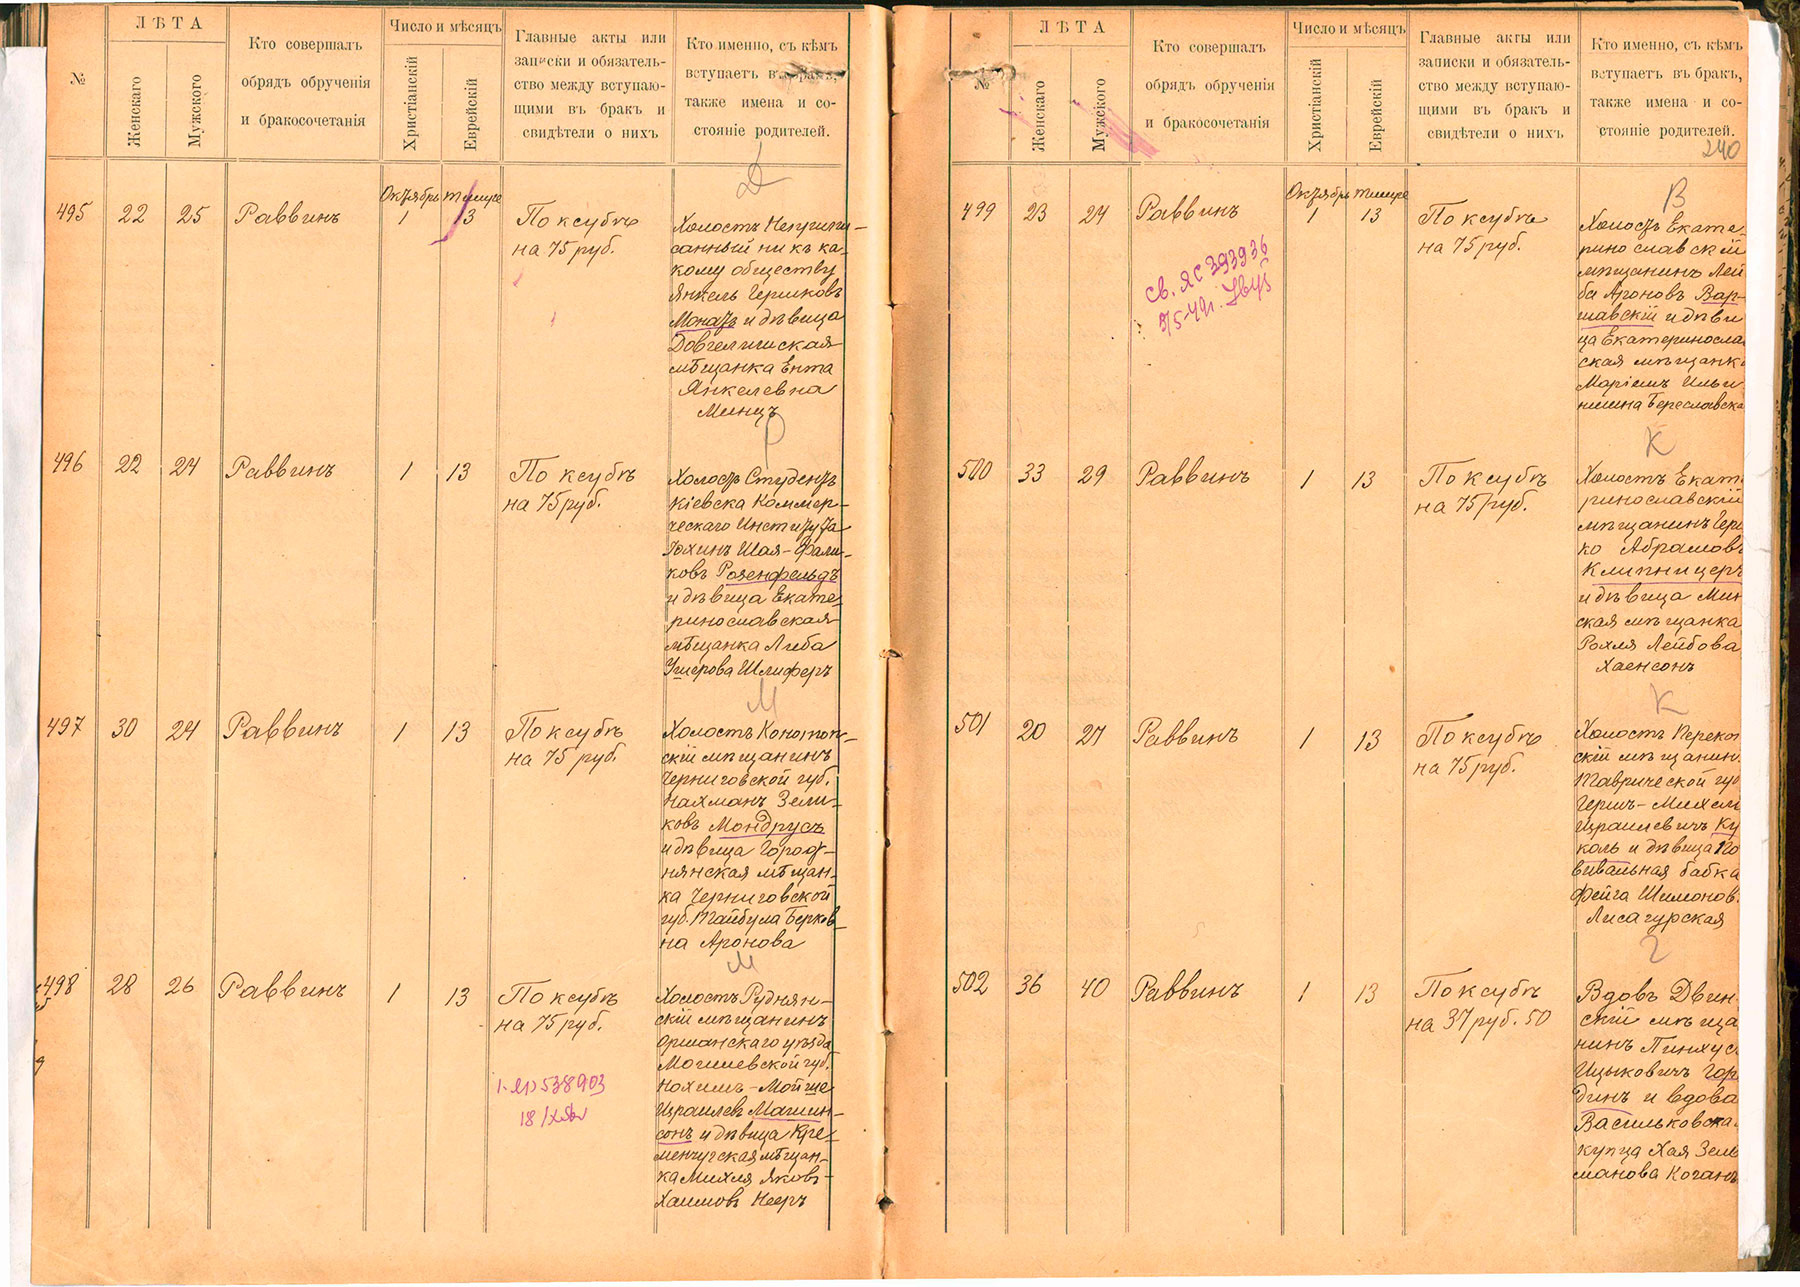 №
ЛѢТА
Женскаго
Мужского
Кто совершалъ
обрядъ обрученія
и бракосочетанія
Число и мѣсяцъ
Христіанскій
Еврейскій
Главные акты или
записки и обязатель-
ство между вступаю-
щими въ бракъ и
свидѣтели о нихъ
Кто именно, съ кѣмъ
вступаетъ въ бракъ,
также имена и со-
стояніе родителей.
Октябрь Тишре
495 22 25 Раввинъ 1 13
По ксубѣ
на 75 руб.
Холостъ Неприпи-
санный ни къ ка-
кому обществу
Янкель Гершковъ
Монатъ и дѣвица
Довгелишская
мѣщанка Ента
Янкелевна
Минцъ
Р
496 22 24 Раввинъ 1 13
По ксубѣ
на 75 руб.
Холостъ Студентъ
Кіевска Коммер-
ческаго Института
Іохинъ Шая-Фали-
ковъ Розенфельдъ
и дѣвица Екате-
ринославская
мѣщанка Либа
Ушерова Шлиферъ
М
497 30 24 Раввинъ 1 13
По ксубѣ
на 75 руб.
Холостъ Конотоп-
скій мѣщанинъ
Черниговской губ.
Нахманъ Зели-
ковъ Мондрусъ
и дѣвица Городн-
нянская мѣщан-
ка Черниговской
губ. Тайбула Берков-
на Аронова
М
498 28 26 Раввинъ 1 13
По ксубѣ
на 75 руб.
Холостъ Руднян-
скій мѣщанинъ
Оршанскаго уѣзда
Могилевской губ.
Нохимъ-Мойше
Израилевъ Магин-
сонъ и дѣвица Кре-
менчугская мѣщан-
ка Михля Яковъ-
Хаимовъ Нееръ
538903
№
ЛѢТА
Женскаго
Мужского
Кто совершалъ
обрядъ обрученія
и бракосочетанія
Число и мѣсяцъ
Христіанскій
Еврейскій
Главные акты или
записки и обязатель-
ство между вступаю-
щими въ бракъ и
свидѣтели о нихъ
Кто именно, съ кѣмъ
вступаетъ въ бракъ,
также имена и со-
стояніе родителей.
240
Октябрь Тишре
В
499 23 27 Раввинъ 1 13
По ксубѣ
на 75 руб.
Холостъ Екате-
ринославскій
мѣщанинъ Лей
ба Ароновъ Вар-
шавскій и дѣви
ца Екатеринослав
ская мѣщанка
Маріемъ Ильи
нишна Береславска
св. ЯС 393936
К
500 33 29 Раввинъ 1 13
По ксубѣ
на 75 руб.
Холостъ Екат
ринославскій
мѣщанинъ Герш
ко Абрамовъ
Клипницеръ
и дѣвица Мин
ская мѣщанка
Рохля Лейбова
Хаенсонъ
К
501 20 27 Раввинъ 1 13
По ксубѣ
на 75 руб.
Холостъ Переко
скій мѣщанин
Таврической губ
Гершъ-Михел
Израилевичъ Ку
коль и дѣвица По
вивальная бабка
Фейга Шимонов.
Лисагурская
Г
502 36 40 Раввинъ 1 13
По ксубѣ
на 37 руб. 50
Вдовъ Двин-
скій мѣща
нинъ Пинхус
Ицыковичъ Гор
динъ и вдова
Васильковска
купца Хая Зель
манова Коганъ